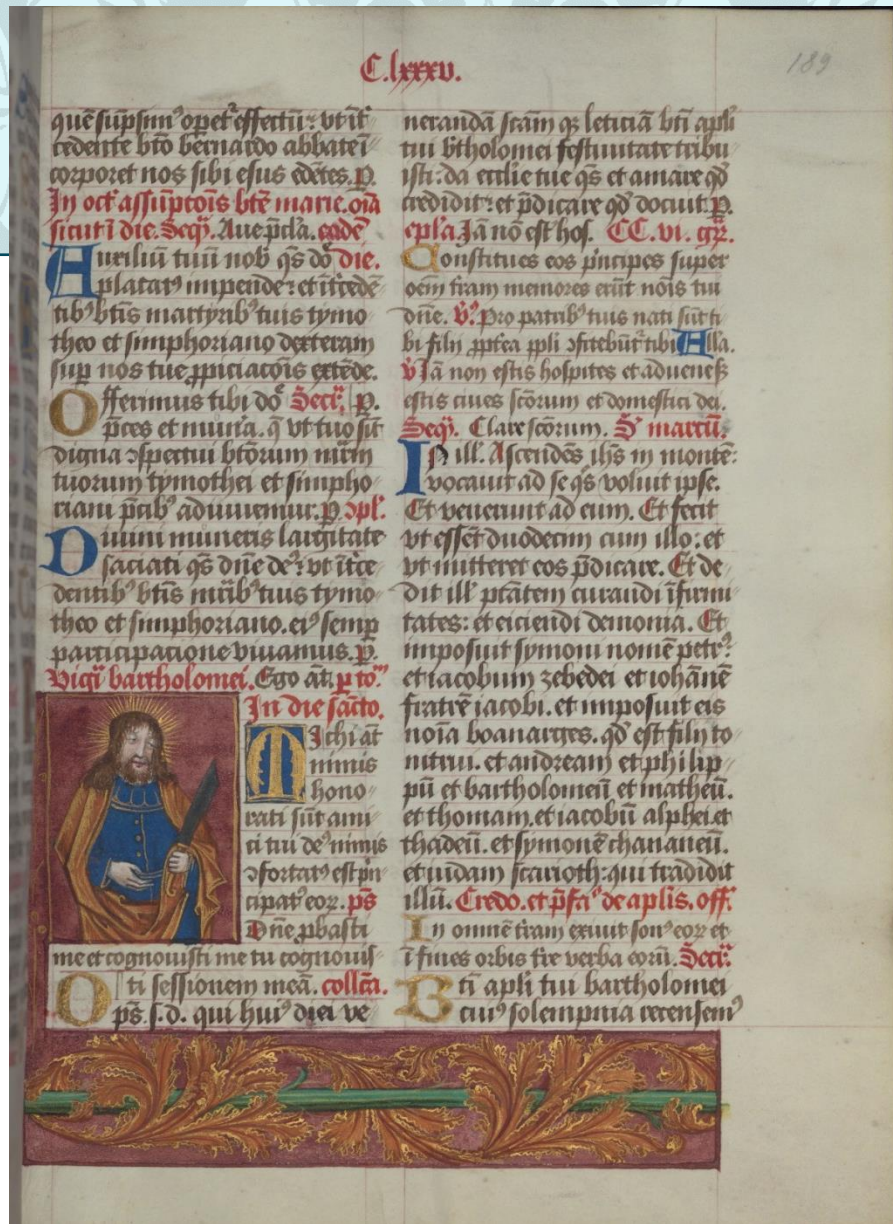 C.lxxxv.
189
quē sūpsim⁹ op̄et᷑ effectū: vt īt͛
cedente bt̄o bernardo abbate ī
corporet nos sibi esus edētes. P.
In oct͛ assūptōīs bt̄e marie. oīa
sicut ī die. Seq̄. Aue p̄cla. eadē
Auxiliū tuū nob̵ q̄s dō die.
placat⁹ impende: et īt͛cedē
tib⁹ bt̄is martyrib⁹ tuis tymo
theo et simphoriano dexteram
sup̱ nos tue ꝓpiciacōīs extēde.
Offerimus tibi dō Secr̄. P.
p̄ces et mun̄ia. q̄ vt tuo sīt
digna ɔspectui btōrum mr̄m
tuorum tymothei et simpho
riani p̄cib⁹ adiuuemur. P. ɔpl̄.
Diuini muneris largitate
saciati q̄s dn̄e de⁹: vt īt͛ce
dentib⁹ bt̄is mr̄ib⁹ tuis tymo
theo et simphoriano. ei⁹ semp̱
participacione viuamus. P.
Vigil̄ bartholomei. Ego āt. ꝑ to͞m
In die sācto.
Michi āt
nimis
hono
rati sūt ami
ci tui de⁹ nimis
ɔfortat⁹ est p̄n
cipat⁹ eoꝝ. ps̄
Dn̄e ꝓbasti
me et cognouisti me tu cognouis
ti sessionem meā. collc̄a.
Ops̄. s. d. qui hui⁹ diei ve
nerandā sc̄am qꝫ leticiā bt̄i apl̄i
tui btholomei festiuitate tribu
isti: da eccl̄ie tue q̄s et amare qd̄
credidit: et p̄dicare qd̄ docuit. P.
epl̄a Jā nō est hos. CC. vi. gr̄.
Constitues eos p̄ncipes super
oēm t͛ram memores erūt nōīs tui
dn̄e. V̄. Pro patrib⁹ tuis nati sūt ti
bi filij ꝓpt͛ea ppl̄i ɔfitebūt᷑ tibi Alla.
V̄ Jā non estis hospites et adueneß
estis ciues sc̄orum et domestici dei.
Seq̄. Clare sc̄orum. S. marcū.
In ill̄. Ascendēs ih̄s in montē:
vocauit ad se q̄s voluit ipse.
Et venerunt ad eum. Et fecit
vt essēt duodecim cum illo: et
vt mitteret eos p̄dicare. Et de
dit ill̄ ptātem curandi īfirmi
tates: et eiciendi demonia. Et
imposuit symoni nomē petr⁹:
et iacobum zebedei et iohānē
fratrē iacobi. et imposuit eis
noīa boanarges. qd̄ est filij to
nitrui. et andream et philip
pū et bartholomeū et matheū.
et thomam. et iacobū alphei. et
thadeū. et symonē chananeū.
et iudam scarioth: qui tradidit
illū. Credo. et p̄fa⁹ de aplis. off͛.
In omnē t͛ram exiuit son⁹ eoꝝ et
ī fines orbis t͛re verba eorū. Secr̄.
Bt̄i apl̄i tui bartholomei
cui⁹ solempnia recensem⁹